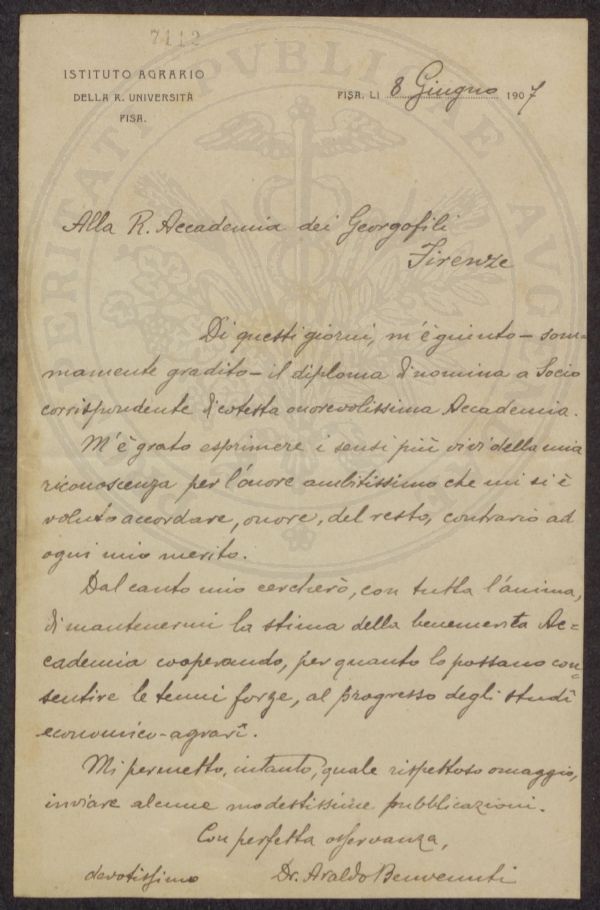 7112
ISTITUTO AGRARIO
DELLA R. UNIVERSITÀ
PISA.
PISA, LI 8 Giugno 1907
Alla R. Accademia dei Georgofili
Firenze
Di questi giorni, m'è giunto – som-
mamente gradito – il diploma di nomina a Socio
corrispondente di cotesta onorevolissima Accademia.
M'è grato esprimere i sensi più vivi della mia
riconoscenza per l'onore ambitissimo che mi si è
voluto accordare, onore, del resto, contrario ad
ogni mio merito.
Dal canto mio cercherò, con tutta l'anima,
di mantenermi la stima della benemerita Ac=
cademia cooperando, per quanto lo possano con=
sentire le tenui forze, al progresso degli studî
economico-agrarî.
Mi permetto, intanto, quale rispettoso omaggio,
inviare alcune modestissime pubblicazioni.
Con perfetta osservanza,
devotissimo Dr. Araldo Benvenuti
PROSPERITATI PVBLICAE AVGENDAE